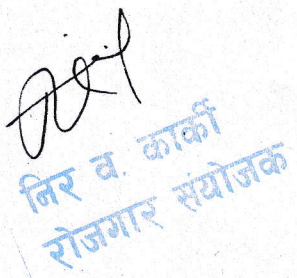 निर ब. कार्की
रोजगार संयोजक